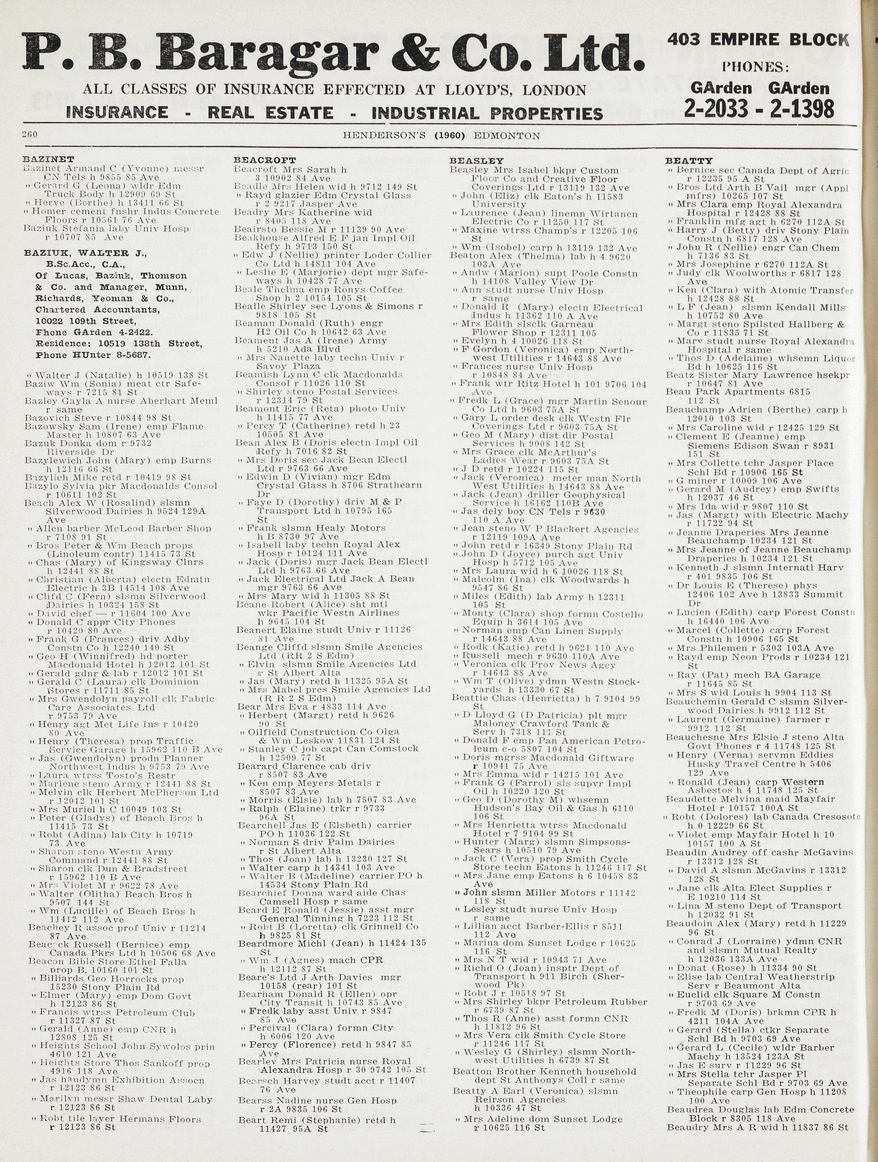 P. B. Baragar & Co. Ltd.
ALL CLASSES OF INSURANCE EFFECTED AT LLOYD'S, LONDON
INSURANCE - REAL ESTATE - INDUSTRIAL PROPERTIES
403 EMPIRE BLOCK
PHONES:
GArden GArden
2-2033 - 2-1398
260
HENDERSON'S (1960) EDMONTON
BAZINET
Bazinet Armand C (Yvonne) messr
CN Tels h 9855 85 Ave
" Gerard G (Leona) wldr Edm
Truck Body h 12909 69 St
" Herve (Berthe) h 13411 66 St
" Homer cement fnshr Indus Concrete
Floors r 10561 76 Ave
Baziuk Stefania laby Univ Hosp
r 10707 85 Ave
BAZIUK, WALTER J.,
B.Sc.Acc., C.A.,
Of Lucas, Baziuk, Thomson
& Co. and Manager, Munn,
Richards, Yeoman & Co.,
Chartered Accountants,
10022 109th Street,
Phone GArden 4-2422.
Residence: 10519 138th Street,
Phone HUnter 8-5687.
" Walter J (Natalie) h 10519 138 St
Baziw Wm (Sonia) meat ctr Safe-
ways r 7215 81 St
Bazley Gayla A nurse Aberhart Meml
r same
Bazovich Steve r 10844 98 St
Bazowsky Sam (Irene) emp Flame
Master h 10807 63 Ave
Bazuk Donka dom r 9732
Riverside Dr
Bazylewich John (Mary) emp Burns
h 12116 66 St
Bazylich Mike retd r 10419 98 St
Bazylo Sylvia pkr Macdonalds Consol
r 10611 102 St
Beach Alex W (Rosalind) slsmn
Silverwood Dairies h 9524 129A
Ave
" Allen barber McLeod Barber Shop
r 7108 91 St
" Bros Peter & Wm Beach props
(Linoleum contr) 11415 73 St
" Chas (Mary) of Kingsway Clnrs
h 12441 88 St
" Christian (Alberta) electn Edmtn
Electric h 3B 14514 108 Ave
" Cliff C (Fern) slsmn Silverwood
Dairies h 10324 158 St
" David chef — r 11604 100 Ave
" Donald C appr City Phones
r 10420 80 Ave
" Frank G (Frances) driv Adby
Constn Co h 12240 140 St
" Geo H (Winnifred) hd porter
Macdonald Hotel h 12012 101 St
" Gerald gdnr & lab r 12012 101 St
" Gerald C (Laura) clk Dominion
Stores r 11711 85 St
" Mrs Gwendolyn payroll clk Fabric
Care Associates Ltd
r 9753 79 Ave
" Henry agt Met Life Ins r 10420
80 Ave
" Henry (Theresa) prop Traffic
Service Garage h 15962 110 B Ave
" Jas (Gwendolyn) prodn Planner
Northwest Indus h 9753 79 Ave
" Laura wtrss Tosto's Restr
" Marlene steno Army r 12441 88 St
" Melvin clk Herbert McPherson Ltd
r 12012 101 St
" Mrs Muriel h C 10049 103 St
" Peter (Gladys) of Beach Bros h
11415 73 St
" Robt (Adina) lab City h 10719
73 Ave
" Sharon steno Westn Army
Command r 12441 88 St
" Sharon clk Dun & Bradstreet
r 15962 110 B Ave
" Mrs Violet M r 9622 78 Ave
" Walter (Olitha) Beach Bros h
9507 144 St
" Wm (Lucille) of Beach Bros h
11412 112 Ave
Beachey R assoc prof Univ r 11214
87 Ave
Beacock Russell (Bernice) emp
Canada Pkrs Ltd h 10506 68 Ave
Beacon Bible Store Ethel Falla
prop B, 10160 101 St
" Billiards Geo Horrocks prop
15230 Stony Plain Rd
" Elmer (Mary) emp Dom Govt
h 12123 86 St
" Francis wtrss Petroleum Club
r 11327 87 St
" Gerald (Anne) emp CNR h
12808 125 St
" Heights School John Sywolos prin
4610 121 Ave
" Heights Store Thos Sankoff prop
4916 118 Ave
" Jas handymn Exhibition Assocn
r 12123 86 St
" Marilyn messr Shaw Dental Laby
r 12123 86 St
" Robt tile layer Hermans Floors
r 12123 86 St
BEACROFT
Beacroft Mrs Sarah h
3 10902 84 Ave
Beadle Mrs Helen wid h 9712 149 St
" Rayd glazier Edm Crystal Glass
r 2 9217 Jasper Ave
Beadry Mrs Katherine wid
r 8405 118 Ave
Beairsto Bessie M r 11139 90 Ave
Beakhouse Alfred E F jan Impl Oil
Refy h 9713 150 St
" Edw J (Nellie) printer Loder Collier
Co Ltd h 14811 104 Ave
" Leslie E (Marjorie) dept mgr Safe-
ways h 10428 77 Ave
Beale Thelma emp Ronys Coffee
Shop h 2 10154 105 St
Bealle Shirley sec Lyons & Simons r
9818 105 St
Beaman Donald (Ruth) engr
H2 Oil Co h 10642 63 Ave
Beament Jas A (Irene) Army
h 5210 Ada Blvd
" Mrs Nanette laby techn Univ r
Savoy Plaza
Beamish Lynn C clk Macdonalds
Consol r 11026 110 St
" Shirley steno Postal Services
r 12314 79 St
Beamont Eric (Reta) photo Univ
h 11415 77 Ave
" Percy T (Catherine) retd h 23
10505 81 Ave
Bean Alex B (Doris electn Impl Oil
Refy h 7016 82 St
" Mrs Doris sec Jack Bean Electl
Ltd r 9763 66 Ave
" Edwin D (Vivian) mgr Edm
Crystal Glass h 8706 Strathearn
Dr
" Faye D (Dorothy) driv M & P
Transport Ltd h 10795 165
St
" Frank slsmn Healy Motors
h B 8730 97 Ave
" Isabell laby techn Royal Alex
Hosp r 10124 111 Ave
" Jack (Doris) mgr Jack Bean Electl
Ltd h 9763 66 Ave
" Jack Electrical Ltd Jack A Bean
mgr 9763 66 Ave
" Mrs Mary wid h 11305 88 St
Beane Robert (Alice) sht mtl
wkr Pacific Westn Airlines
h 9645 104 St
Beanert Elaine studt Univ r 11126
81 Ave
Beange Cliffd slsmn Smile Agencies
Ltd (RR 2 S Edm)
" Elvin slsmn Smile Agencies Ltd
r St Albert Alta
" Jas (Mary) retd h 11325 95A St
" Mrs Mabel pres Smile Agencies Ltd
(R R 2 S Edm)
Bear Mrs Eva r 4833 114 Ave
" Herbert (Margt) retd h 9626
90 St
" Oilfield Construction Co Olga
& Wm Leskow 11831 124 St
" Stanley C job capt Can Comstock
h 12509 77 St
Bearard Clarence cab driv
r 8507 83 Ave
" Ken emp Meyers Metals r
8507 83 Ave
" Morris (Elsie) lab h 7507 83 Ave
" Ralph (Elaine) trkr r 9733
96A St
Bearchell Jas E (Elsbeth) carrier
PO h 11036 122 St
" Norman S driv Palm Dairies
r St Albert Alta
" Thos (Joan) lab h 13230 127 St
" Walter carp h 14341 103 Ave
" Walter B (Madeline) carrier PO h
14534 Stony Plain Rd
Bearchief Donna ward aide Chas
Camsell Hosp r same
Beard E Ronald (Jessie) asst mgr
General Tinning h 7223 112 St
" Robt B (Loretta) clk Grinnell Co
h 9825 81 St
Beardmore Michl (Jean) h 11424 135
St
" Wm J (Agnes) mach CPR
h 12112 87 St
Beare's Ltd J Arth Davies mgr
10158 (rear) 101 St
Bearham Donald R (Ellen) opr
City Transit h 10743 85 Ave
" Fredk laby asst Univ r 9847
85 Ave
" Percival (Clara) formn City
h 6006 120 Ave
" Percy (Florence) retd h 9847 85
Ave
Bearley Mrs Patricia nurse Royal
Alexandra Hosp r 30 9742 105 St
Bearsch Harvey studt acct r 11407
76 Ave
Bearss Nadine nurse Gen Hosp
r 2A 9835 106 St
Beart Remi (Stephanie) retd h
11427 95A St
BEASLEY
Beasley Mrs Isabel bkpr Custom
Floor Co and Creative Floor
Coverings Ltd r 13119 132 Ave
" John (Eliz) clk Eaton's h 11583
University
" Laurence (Jean) linemn Wirtanen
Electric Co r 11250 117 St
" Maxine wtrss Champ's r 12205 106
St
" Wm (Isobel) carp h 13119 132 Ave
Beaton Alex (Thelma) lab h 4 9620
103A Ave
" Andw (Marion) supt Poole Constn
h 14108 Valley View Dr
" Ann studt nurse Univ Hosp
r same
" Donald R (Mary) electn Electrical
Indus h 11362 110 A Ave
" Mrs Edith slsclk Garneau
Flower Shop r 12311 105
" Evelyn h 4 10026 118 St
" F Gordon (Veronica) emp North-
west Utilities r 14643 88 Ave
" Frances nurse Univ Hosp
r 10848 84 Ave
" Frank wtr Ritz Hotel h 101 9706 104
Ave
" Fredk L (Grace) mgr Martin Senour
Co Ltd h 9603 75A St
" Gary L order desk clk Westn Flr
Coverings Ltd r 9603 75A St
" Geo M (Mary) dist dir Postal
Services h 9008 142 St
" Mrs Grace clk McArthur's
Ladies Wear r 9603 75A St
" J D retd r 10224 115 St
" Jack (Veronica) meter man North
West Utilities h 14643 88 Ave
" Jack (Jean) driller Geophysical
Service h 16162 110B Ave
" Jas dely boy CN Tels r 9630
110 A Ave
" Jean steno W P Blackert Agencies
r 12119 109A Ave
" John retd r 16349 Stony Plain Rd
" John D (Joyce) purch agt Univ
Hosp h 5712 105 Ave
" Mrs Laura wid h 6 10026 118 St
" Malcolm (Ina) clk Woodwards h
9547 86 St
" Miles (Edith) lab Army h 12311
105 St
" Monty (Clara) shop formn Costello
Equip h 3614 105 Ave
" Norman emp Can Linen Supply
r 14643 88 Ave
" Rodk (Katie) retd h 9621 110 Ave
" Russell mech r 9630 110A Ave
" Veronica clk Prov News Agcy
r 14643 88 Ave
" Wm T (Olive) ydmn Westn Stock-
yards h 13330 67 St
Beattie Chas (Henrietta) h 7 9104 99
St
" D Lloyd G (D Patricia) plt mgr
Maloney Crawford Tank &
Serv h 7318 111 St
" Donald F emp Pan American Petro-
leum c-o 5807 104 St
" Doris mgrss Macdonald Giftware
r 10941 75 Ave
" Mrs Emma wid r 14215 101 Ave
" Frank G (Farrol) sls supvr Impl
Oil h 10220 120 St
" Geo D (Dorothy M) whsemn
Hudson's Bay Oil & Gas h 6110
106 St
" Mrs Henrietta wtrss Macdonald
Hotel r 7 9104 99 St
" Hunter (Marg) slsmn Simpsons-
Sears h 10510 79 Ave
" Jack C (Vera) prop Smith Cycle
Store techn Eatons h 11246 117 St
" Mrs Jane emp Eatons h 6 10458 83
Ave
" John slsmn Miller Motors r 11142
118 St
" Lesley studt nurse Univ Hosp
r same
" Lillian acct Barber-Ellis r 8511
112 Ave
" Marina dom Sunset Lodge r 10625
116 St
" Mrs N T wid r 10943 71 Ave
" Richd O (Jean) insptr Dept of
Transport h 911 Birch (Sher-
wood Pk)
" Robt J r 10518 97 St
" Mrs Shirley bkpr Petroleum Rubber
r 6739 87 St
" Thos R (Anne) asst formn CNR
h 11812 96 St
" Mrs Vera clk Smith Cycle Store
r 11246 117 St
" Wesley G (Shirley) slsmn North-
west Utilities h 6739 87 St
Beatton Brother Kenneth household
dept St Anthonys Coll r same
Beatty A Earl (Veronica) slsmn
Reirson Agencies
h 10336 47 St
" Mrs Adeline dom Sunset Lodge
r 10625 116 St
BEATTY
" Bernice sec Canada Dept of Agric
r 12235 95 A St
" Bros Ltd Arth B Vail mgr (Appl
mfrs) 10265 107 St
" Mrs Clara emp Royal Alexandra
Hospital r 12428 88 St
" Franklin mfg agt h 6270 112A St
" Harry J (Betty) driv Stony Plain
Constn h 6817 128 Ave
" John R (Nellie) engr Can Chem
h 7136 83 St
" Mrs Josephine r 6270 112A St
" Judy clk Woolworths r 6817 128
Ave
" Ken (Clara) with Atomic Transfer
h 12428 88 St
" L F (Jean) slsmn Kendall Mills
h 10752 80 Ave
" Margt steno Spilsted Hallberg &
Co r 11835 71 St
" Mary studt nurse Royal Alexandra
Hospital r same
" Thos D (Adelaine) whsemn Liquor
Bd h 10625 116 St
Beatz Sister Mary Lawrence hsekpr
r 10647 81 Ave
Beau Park Apartments 6815
112 St
Beauchamp Adrien (Berthe) carp h
12010 103 St
" Mrs Caroline wid r 12425 129 St
" Clement E (Jeanne) emp
Siemens Edison Swan r 8931
151 St
" Mrs Collette tchr Jasper Place
Schl Bd r 10906 165 St
" G miner r 10009 106 Ave
" Gerard M (Audrey) emp Swifts
h 12037 46 St
" Mrs Ida wid r 9807 110 St
" Jas (Margt) with Electric Machy
r 11722 94 St
" Jeanne Draperies Mrs Jeanne
Beauchamp 10234 121 St
" Mrs Jeanne of Jeanne Beauchamp
Draperies h 10234 121 St
" Kenneth J slsmn Internatl Harv
r 401 9835 106 St
" Dr Louis E (Therese) phys
12406 102 Ave h 13833 Summit
Dr
" Lucien (Edith) carp Forest Constn
h 16440 106 Ave
" Marcel (Collette) carp Forest
Constn h 10906 165 St
" Mrs Philemen r 5303 103A Ave
" Rayd emp Neon Prods r 10234 121
St
" Ray (Pat) mech BA Garage
r 11645 85 St
" Mrs S wid Louis h 9904 113 St
Beauchemin Gerald C slsmn Silver-
wood Dairies h 9912 112 St
" Laurent (Germaine) farmer r
9912 112 St
Beauchesne Mrs Elsie J steno Alta
Govt Phones r 4 11748 125 St
" Henry (Verna) servmn Eddies
Husky Travel Centre h 5406
129 Ave
" Ronald (Jean) carp Western
Asbestos h 4 11748 125 St
Beaudette Melvina maid Mayfair
Hotel r 10157 100A St
" Robt (Dolores) lab Canada Cresosote
h 0 12229 66 St
" Violet emp Mayfair Hotel h 10
10157 100 A St
Beaudin Audrey off cashr McGavins
r 13312 128 St
" David A slsmn McGavins r 13312
128 St
" Jane clk Alta Elect Supplies r
E 10210 114 St
" Lina M steno Dept of Transport
h 12032 91 St
Beaudoin Alex (Mary) retd h 11229
96 St
" Conrad J (Lorraine) ydmn CNR
and slsmn Mutual Realty
h 12036 133A Ave
" Donat (Rose) h 11334 90 St
" Elise lab Central Weatherstrip
Serv r Beaumont Alta
" Euclid clk Square M Constn
r 9703 69 Ave
" Fredk M (Doris) brkmn CPR h
4211 104A Ave
" Gerard (Stella) ctkr Separate
Schl Bd h 9703 69 Ave
" Gerard L (Cecile) wldr Barber
Machy h 13524 123A St
" Jas E surv r 11229 96 St
" Mrs Stella tchr Jasper Pl
Separate Schl Bd r 9703 69 Ave
" Theophile carp Gen Hosp h 11208
100 Ave
Beaudrea Douglas lab Edm Concrete
Block r 8305 118 Ave
Beaudry Mrs A R wid h 11837 86 St